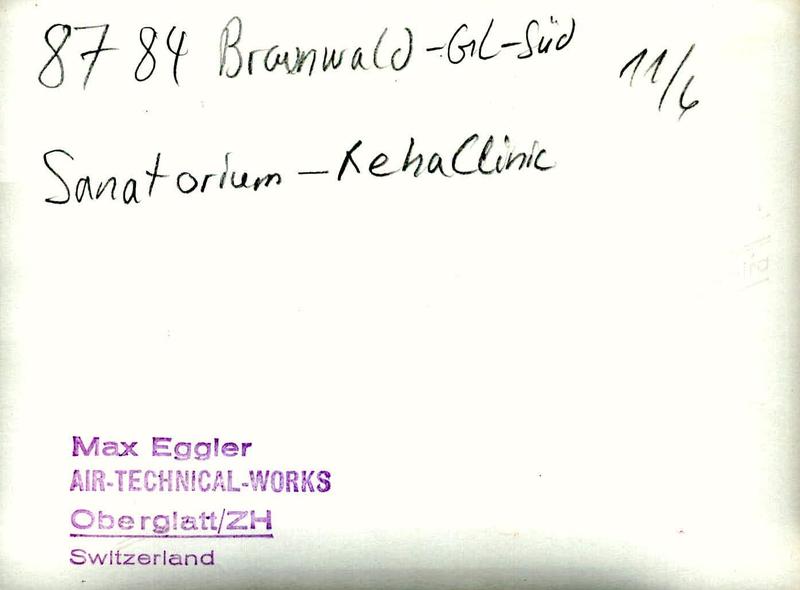 8784 Braunwald-GL-Süd 11/6
Sanatorium - RehaClinic
Max Eggler
AIR-TECHNICAL-WORKS
Oberglatt/ZH
Switzerland